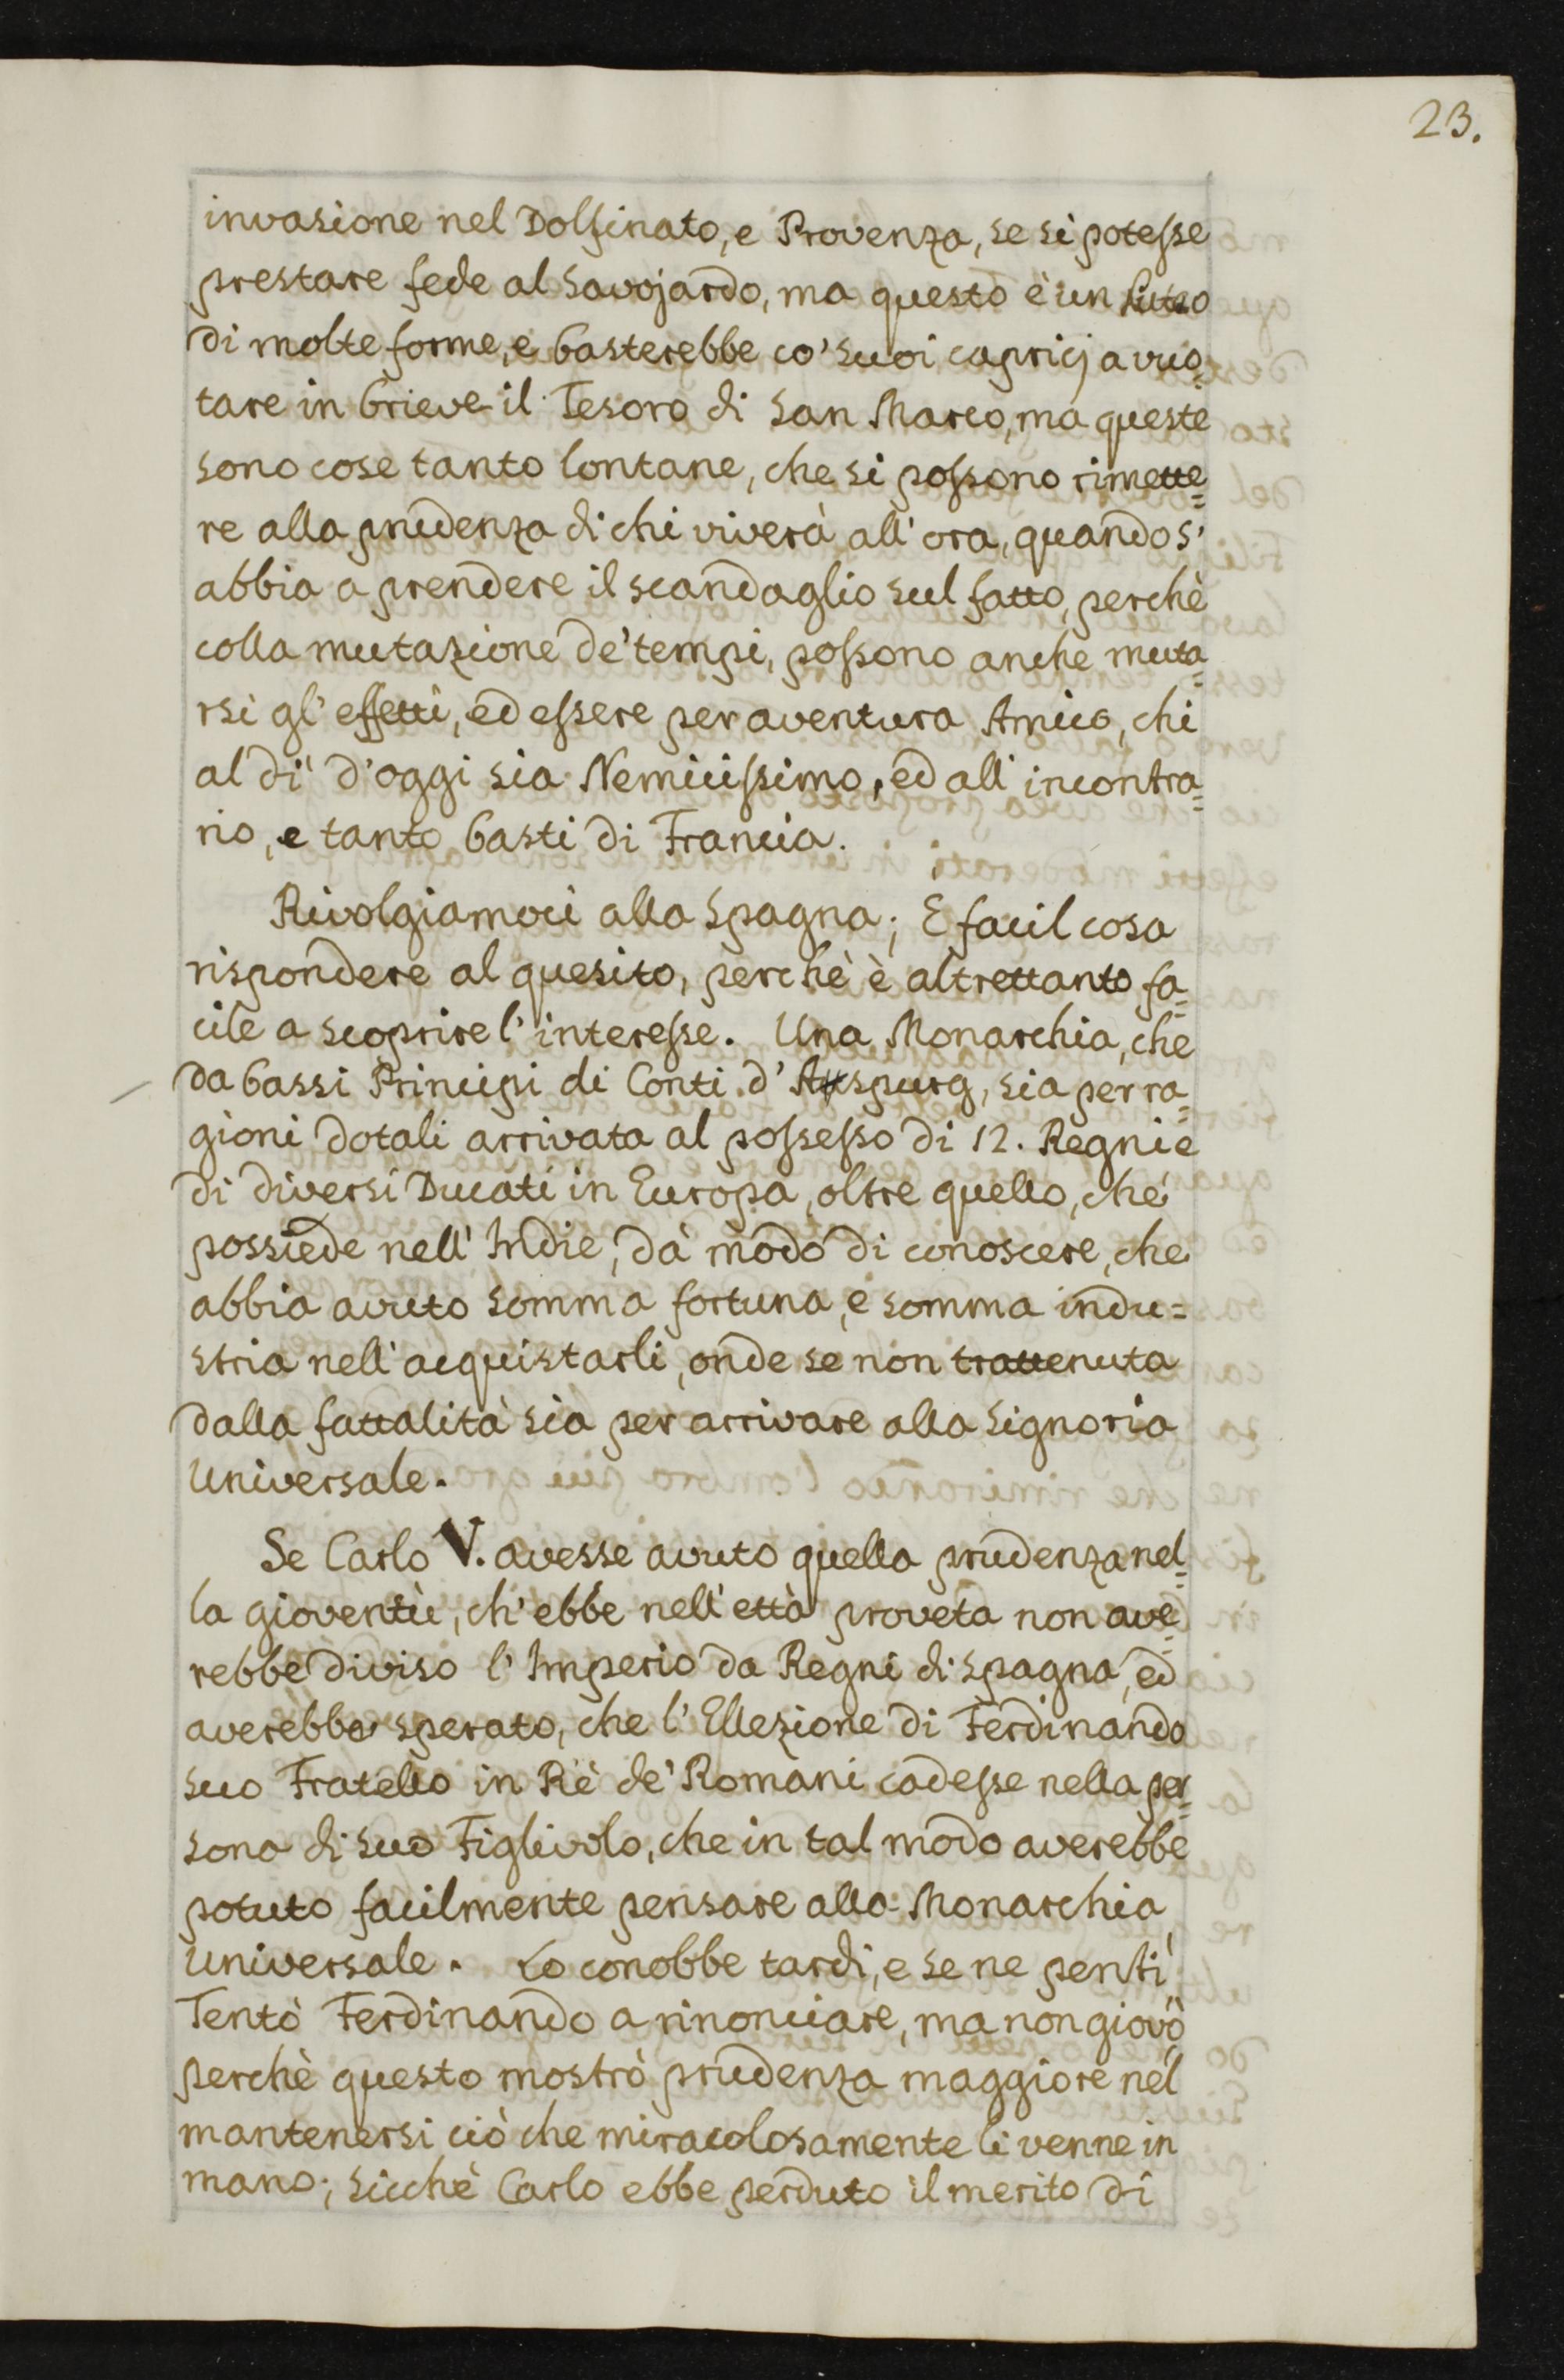 23.
invasione nel Dolfinato, e Provenza, se si potesse
prestare fede al Savojardo, ma questo è un
di molte forme, e basterebbe co' suoi capricj a vuo=
tare in brieve il Tesoro di San Marco, ma queste
sono cose tanto lontane, che si possono rimette=
re alla prudenza di chi viverà all'ora, quando s'
abbia a prendere il scandaglio sul fatto, perchè
colla mutazione de' tempi, possono anche muta=
rsi gl'effetti, ed essere per aventura Amico, chi
al dì d'oggi sia Nemicissimo, ed all'incontra=
rio, e tanto basti di Francia.
Rivolgiamoci alla Spagna; E facil cosa
rispondere al quesito, perchè è altrettanto fa=
cile a scoprire l'interesse. Una Monarchia, che
da bassi Principi di Conti d'Auspurg, sia per ra=
gioni dotali arrivata al possesso di 12. Regni e
di diversi Ducati in Europa, oltre quello, che
possiede nell'Indie, dà modo di conoscere, che
abbia avuto somma fortuna, e somma indu=
stria nell'acquistarli, onde se non trattenuta
dalla fattalità sia per arrivare alla Signoria
Universale.
Se Carlo V. avesse avuto quella prudenza nel=
la gioventù, ch'ebbe nell'ettà proveta non ave=
rebbe diviso l'Imperio da Regni di Spagna, ed
averebbe sperato, che l'Ellezione di Ferdinando
suo Fratello in Rè de' Romani cadesse nella per=
sona di suo Figlivolo, che in tal modo averebbe
potuto facilmente pensare alla Monarchia
Universale. Lo conobbe tardi, e se ne pentì,
Tentò Ferdinando a rinonciare, ma non giovò
perchè questo mostrò prudenza maggiore nel
mantenersi ciò che miracolosamente li venne in
mano; sicchè Carlo ebbe perduto il merito di